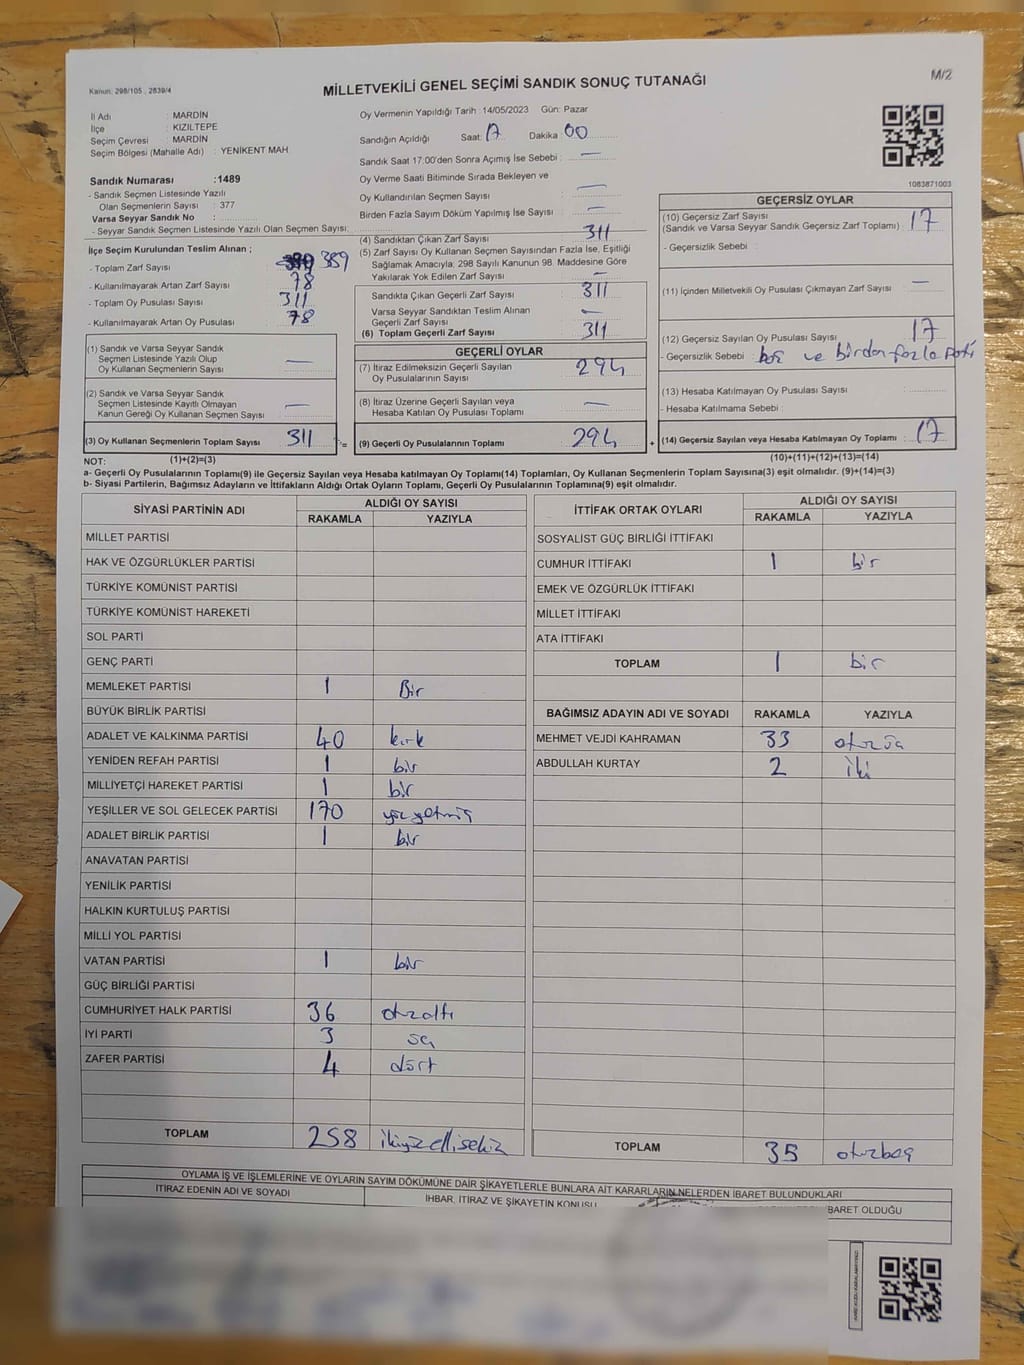 M/2
Kanun: 298/105 , 2839/4
MİLLETVEKİLİ GENEL SEÇİMİ SANDIK SONUÇ TUTANAĞI
İl Adı : MARDİN
İlçe : KIZILTEPE
Seçim Çevresi : MARDİN
Seçim Bölgesi (Mahalle Adı) : YENİKENT MAH.
Sandık Numarası :1489
- Sandık Seçmen Listesinde Yazılı
Olan Seçmenlerin Sayısı : 377
Varsa Seyyar Sandık No :
- Seyyar Sandık Seçmen Listesinde Yazılı Olan Seçmen Sayısı:
Oy Vermenin Yapıldığı Tarih :14/05/2023 Gün: Pazar
Sandığın Açıldığı Saat: 17 Dakika 00
Sandık Saat 17:00'den Sonra Açımış İse Sebebi : —
Oy Verme Saati Bitiminde Sırada Bekleyen ve
Oy Kullandırılan Seçmen Sayısı : —
Birden Fazla Sayım Döküm Yapılmış İse Sayısı : —
1083871003
İlçe Seçim Kurulundan Teslim Alınan ;
- Toplam Zarf Sayısı : 389
- Kullanılmayarak Artan Zarf Sayısı : 78
- Toplam Oy Pusulası Sayısı : 311
- Kullanılmayarak Artan Oy Pusulası : 78
(1) Sandık ve Varsa Seyyar Sandık
Seçmen Listesinde Yazılı Olup
Oy Kullanan Seçmenlerin Sayısı : —
(2) Sandık ve Varsa Seyyar Sandık
Seçmen Listesinde Kayıtlı Olmayan
Kanun Gereği Oy Kullanan Seçmen Sayısı : —
(3) Oy Kullanan Seçmenlerin Toplam Sayısı : 311 =
(1)+(2)=(3)
(4) Sandıktan Çıkan Zarf Sayısı : 311
(5) Zarf Sayısı Oy Kullanan Seçmen Sayısından Fazla İse, Eşitliği
Sağlamak Amacıyla; 298 Sayılı Kanunun 98. Maddesine Göre
Yakılarak Yok Edilen Zarf Sayısı : —
Sandıkta Çıkan Geçerli Zarf Sayısı : 311
Varsa Seyyar Sandıktan Teslim Alınan
Geçerli Zarf Sayısı : —
(6) Toplam Geçerli Zarf Sayısı : 311
GEÇERLİ OYLAR
(7) İtiraz Edilmeksizin Geçerli Sayılan
Oy Pusulalarının Sayısı : 294
(8) İtiraz Üzerine Geçerli Sayılan veya
Hesaba Katılan Oy Pusulası Toplamı : —
(9) Geçerli Oy Pusulalarının Toplamı : 294 +
GEÇERSİZ OYLAR
(10) Geçersiz Zarf Sayısı
(Sandık ve Varsa Seyyar Sandık Geçersiz Zarf Toplamı) : 17
- Geçersizlik Sebebi :
(11) İçinden Milletvekili Oy Pusulası Çıkmayan Zarf Sayısı : —
(12) Geçersiz Sayılan Oy Pusulası Sayısı : 17
- Geçersizlik Sebebi : boş ve birden fazla
(13) Hesaba Katılmayan Oy Pusulası Sayısı :
- Hesaba Katılmama Sebebi :
(14) Geçersiz Sayılan veya Hesaba Katılmayan Oy Toplamı : 17
(10)+(11)+(12)+(13)=(14)
NOT:
a- Geçerli Oy Pusulalarının Toplamı(9) ile Geçersiz Sayılan veya Hesaba katılmayan Oy Toplamı(14) Toplamları, Oy Kullanan Seçmenlerin Toplam Sayısına(3) eşit olmalıdır. (9)+(14)=(3)
b- Siyasi Partilerin, Bağımsız Adayların ve İttifakların Aldığı Ortak Oyların Toplamı, Geçerli Oy Pusulalarının Toplamına(9) eşit olmalıdır.
SİYASİ PARTİNİN ADI ALDIĞI OY SAYISI
RAKAMLA YAZIYLA
MİLLET PARTİSİ
HAK VE ÖZGÜRLÜKLER PARTİSİ
TÜRKİYE KOMÜNİST PARTİSİ
TÜRKİYE KOMÜNİST HAREKETİ
SOL PARTİ
GENÇ PARTİ
MEMLEKET PARTİSİ 1 Bir
BÜYÜK BİRLİK PARTİSİ
ADALET VE KALKINMA PARTİSİ 40 kırk
YENİDEN REFAH PARTİSİ 1 bir
MİLLİYETÇİ HAREKET PARTİSİ 1 bir
YEŞİLLER VE SOL GELECEK PARTİSİ 170 yüzyetmiş
ADALET BİRLİK PARTİSİ 1 bir
ANAVATAN PARTİSİ
YENİLİK PARTİSİ
HALKIN KURTULUŞ PARTİSİ
MİLLİ YOL PARTİSİ
VATAN PARTİSİ 1 bir
GÜÇ BİRLİĞİ PARTİSİ
CUMHURİYET HALK PARTİSİ 36 otuzaltı
İYİ PARTİ 3 üç
ZAFER PARTİSİ 4 dört
TOPLAM 258 ikiyüzellisekiz
İTTİFAK ORTAK OYLARI ALDIĞI OY SAYISI
RAKAMLA YAZIYLA
SOSYALİST GÜÇ BİRLİĞİ İTTİFAKI
CUMHUR İTTİFAKI 1 bir
EMEK VE ÖZGÜRLÜK İTTİFAKI
MİLLET İTTİFAKI
ATA İTTİFAKI
TOPLAM 1 bir
BAĞIMSIZ ADAYIN ADI VE SOYADI RAKAMLA YAZIYLA
MEHMET VEJDİ KAHRAMAN 33 otuzüç
ABDULLAH KURTAY 2 iki
TOPLAM 35 otuzbeş
OYLAMA İŞ VE İŞLEMLERİNE VE OYLARIN SAYIM DÖKÜMÜNE DAİR ŞİKAYETLERLE BUNLARA AİT KARARLARIN NELERDEN İBARET BULUNDUKLARI
İTİRAZ EDENİN ADI VE SOYADI
İHBAR, İTİRAZ VE ŞİKAYETİN KONUSU
İBARET OLDUĞU